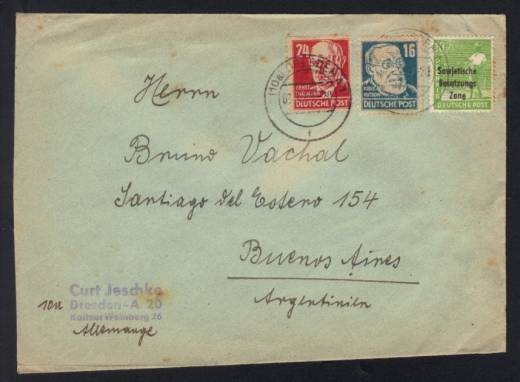 24
DEUTSCHE POST
16
DEUTSCHE POST
Sowjetische
Besatzungs
Zone
DEUTSCHE POST
Herrn
Bruno Vachal
Santiago del Estero 154
Buenos Aires
Argentinien
Curt Jeschke
Dresden-A. 20
Kaitzer Weinberg 26
10a
Allemange